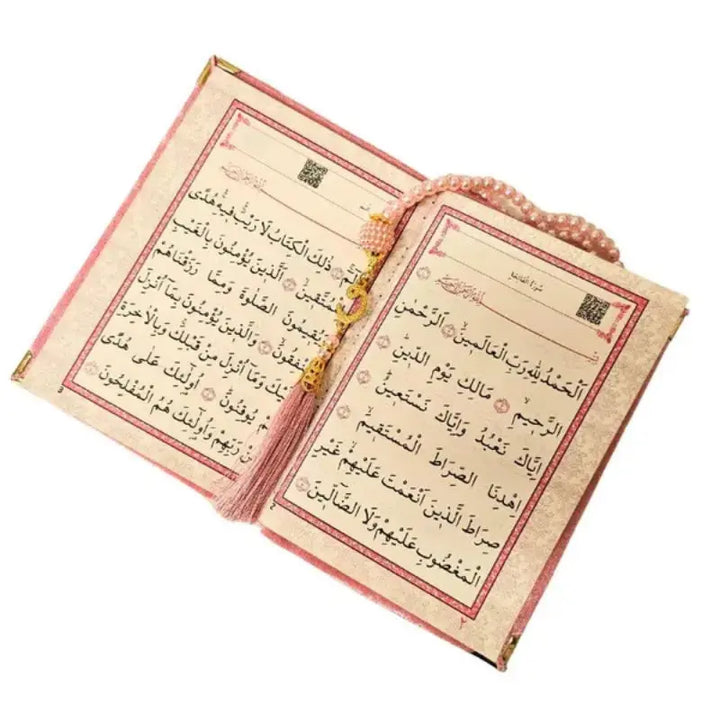 سورة الفاتحة
بسم الله الرحمن الرحيم
اَلْحَمْدُ لِلّٰهِ رَبِّ الْعَالَمِينَۙ اَلرَّحْمٰنِ
الرَّحِيمِۙ مَالِكِ يَوْمِ الدِّينِۜ
اِيَّاكَ نَعْبُدُ وَاِيَّاكَ نَسْتَعِينُۜ
اِهْدِنَا الصِّرَاطَ الْمُسْتَقِيمَۙ
صِرَاطَ الَّذِينَ اَنْعَمْتَ عَلَيْهِمْ غَيْرِ
الْمَغْضُوبِ عَلَيْهِمْ وَلَا الضَّٓالِّينَ
٢
بسم الله الرحمن الرحيم
الٓمٓۚ ذٰلِكَ الْكِتَابُ لَا رَيْبَۚ فِيهِۚ هُدًى
اَلَّذِينَ يُؤْمِنُونَ بِالْغَيْبِ
الصَّلٰوةَ وَمِمَّا رَزَقْنَاهُمْ
وَالَّذِينَ يُؤْمِنُونَ بِمَٓا اُنْزِلَ
وَمَٓا اُنْزِلَ مِنْ قَبْلِكَۚ وَبِالْاٰخِرَةِ
يُوقِنُونَۜ اُولٰٓئِكَ عَلٰى هُدًى
رَبِّهِمْ وَاُولٰٓئِكَ هُمُ الْمُفْلِحُونَ